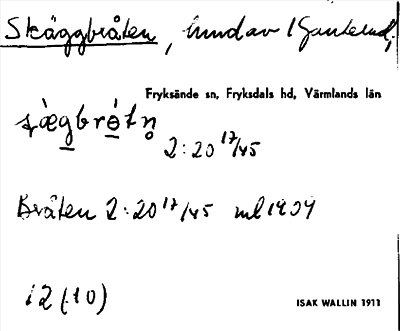 Skäggbråten,
Fryksände sn, Fryksdals hd, Värmlands län
2:20 17/45
Bråten 2:20 17/45 ml 1909
i2 (10)
ISAK WALLIN 1911